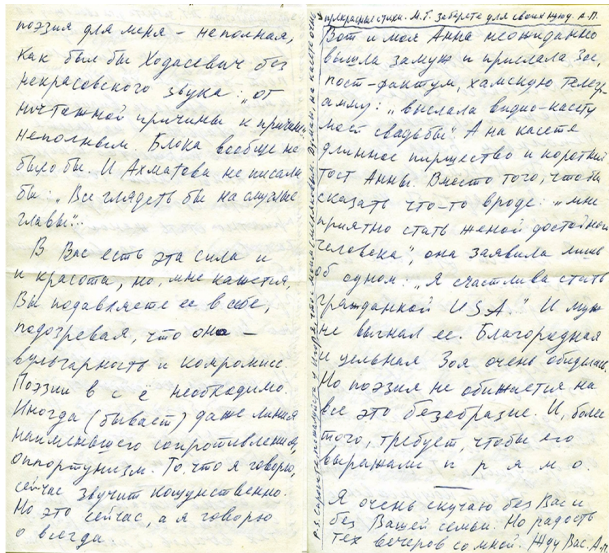 поэзия для меня – неполная,
как был бы Ходасевич без
некрасовского звука: „от
ничтожной причины к причине"
неполным. Блока вообще не
было бы. И Ахматова не писала
бы: „Все глядеть бы на смуглые
главы"...
В Вас есть эта сила и
и красота, но, мне кажется,
Вы подавляете ее в себе,
подозревая, что она –
вульгарность и компромисс.
Поэзии в с ё необходимо.
Иногда (бывает) даже линия
наименьшего сопротивления,
оппортунизм. То, что я говорю,
сейчас звучит кощунственно.
Но это сейчас, а я говорю
о всегда.
прекрасные стихи. М.Т. заберете для своих нужд А.П.
Вот и моя Анна неожиданно
вышла замуж и прислала Зое,
пост-фактум, хамскую телегр-
амму: „выслала видио-касету
моей свадьбы". А на касете
длинное пиршество и короткий
тост Анны. Вместо того, чтобы
сказать что-то вроде: „мне
приятно стать женой достойного
человека", она заявила лишь
об одном: „Я счастлива стать
гражданкой USA." И муж
не выгнал ее. Благородная
и цельная Зоя очень обиделась.
Но поэзия не обижается на
все это безобразие. И, более
того, требует, чтобы его
выражали п р я м о.
Я очень скучаю без Вас и
без Вашей семьи. Но радость
тех вечеров со мной. Жду Вас. А.П.
P.S. Спросите, пожалуйста, у